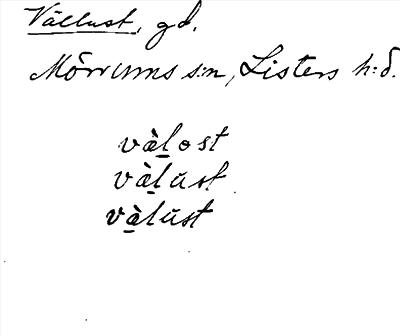 Vällust, gd.
Mörrums s:n, Listers h:d.
vàlost
vàlust
vàlust